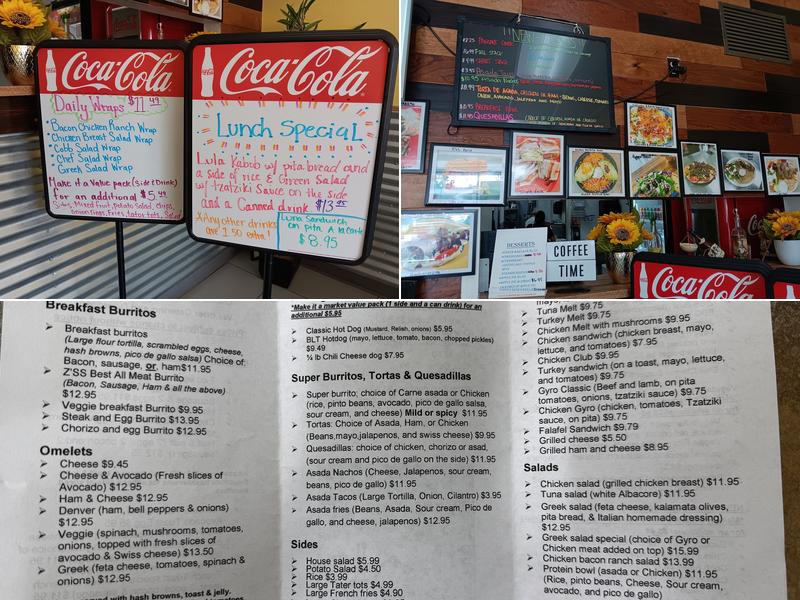 Coca-Cola
Daily Wraps $11.49
Bacon Chicken Ranch Wrap
Chicken Breast Salad Wrap
Cobb Salad Wrap
Chef Salad Wrap
Greek Salad Wrap
Make it a Value pack (Side & Drink)
for an additional $5.49
Sides, Mixed Fruit, Potato Salad, Chips,
onion rings, Fries, tator tots, Salad
Coca-Cola
Lunch Special
Lula Kabob w/ pita bread and
a side of rice & Green Salad
w/ Tzatziki Sauce on the side
and a Canned drink $13.95
Any other drinks
are 1.50 extra!
Lula Sandwich
on pita A la carte
$8.95
MENU
QUESADILLAS
DESSERTS
COFFEE
TIME
Coca-Cola
Breakfast Burritos
Breakfast burritos
(Large flour tortilla, scrambled eggs, cheese,
hash browns, pico de gallo salsa) Choice of:
Bacon, sausage, or, ham$11.95
Z'SS Best All Meat Burrito
(Bacon, Sausage, Ham & all the above)
$12.95
Veggie breakfast Burrito $9.95
Steak and Egg Burrito $13.95
Chorizo and egg Burrito $12.95
Omelets
Cheese $9.45
Cheese & Avocado (Fresh slices of
Avocado) $12.95
Ham & Cheese $12.95
Denver (ham, bell peppers & onions)
$12.95
Veggie (spinach, mushrooms, tomatoes,
onions, topped with fresh slices of
avocado & Swiss cheese) $13.50
Greek (feta cheese, tomatoes, spinach &
onions) $12.95
served with hash browns, toast & jelly.
*Make it a market value pack (1 side and a can drink) for an
additional $5.95
Classic Hot Dog (Mustard, Relish, onions) $5.95
BLT Hotdog (mayo, lettuce, tomato, bacon, chopped pickles)
$9.49
¼ lb Chili Cheese dog $7.95
Super Burritos, Tortas & Quesadillas
Super burrito; choice of Carne asada or Chicken
(rice, pinto beans, avocado, pico de gallo salsa,
sour cream, and cheese) Mild or spicy $11.95
Tortas: Choice of Asada, Ham, or Chicken
(Beans,mayo,jalapenos, and swiss cheese) $9.95
Quesadillas: choice of chicken, chorizo or asad,
(sour cream and pico de gallo on the side) $11.95
Asada Nachos (Cheese, Jalapenos, sour cream,
beans, pico de gallo) $11.95
Asada Tacos (Large Tortilla, Onion, Cilantro) $3.95
Asada fries (Beans, Asada, Sour Cream, Pico de
gallo, and cheese, jalapenos) $12.95
Sides
House salad $5.99
Potato Salad $4.50
Rice $3.99
Large Tater tots $4.99
Large French fries $4.90
mayo,
Tuna Melt $9.75
Turkey Melt $9.75
Chicken Melt with mushrooms $9.95
Chicken sandwich (chicken breast, mayo,
lettuce, and tomatoes) $7.95
Chicken Club $9.95
Turkey sandwich (on a toast, mayo, lettuce,
and tomatoes) $9.75
Gyro Classic (Beef and lamb, on pita
tomatoes, onions, tzatziki sauce) $9.75
Chicken Gyro (chicken, tomatoes, Tzatziki
sauce, on pita) $9.75
Falafel Sandwich $9.79
Grilled cheese $5.50
Grilled ham and cheese $8.95
Salads
Chicken salad (grilled chicken breast) $11.95
Tuna salad (white Albacore) $11.95
Greek salad (feta cheese, kalamata olives,
pita bread, & Italian homemade dressing)
$12.95
Greek salad special (choice of Gyro or
Chicken meat added on top) $15.99
Chicken bacon ranch salad $13.99
Protein bowl (asada or Chicken) $11.95
(Rice, pinto beans, Cheese, Sour Cream,
avocado, and pico de gallo)